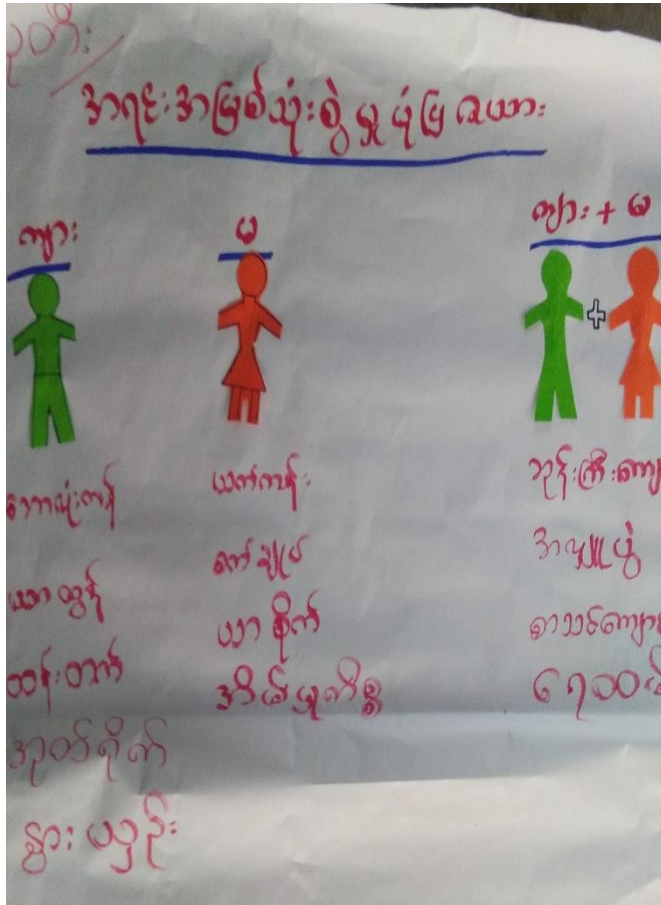 အရင်းအမြစ်သုံးစွဲမှုပုံပြဇယား
ကျား
မ
ကျား + မ
ဘောလုံးကန်
ယာထွန်
ထန်းတက်
အုတ်ရိုက်
နွား ယှဉ်း
ယက်ကန်း
စက်ချုပ်
ယာစိုက်
အိမ်မှုကိစ္စ
ဘုန်းကြီးကျော
အလှူပွဲ
စာသင်ကျော